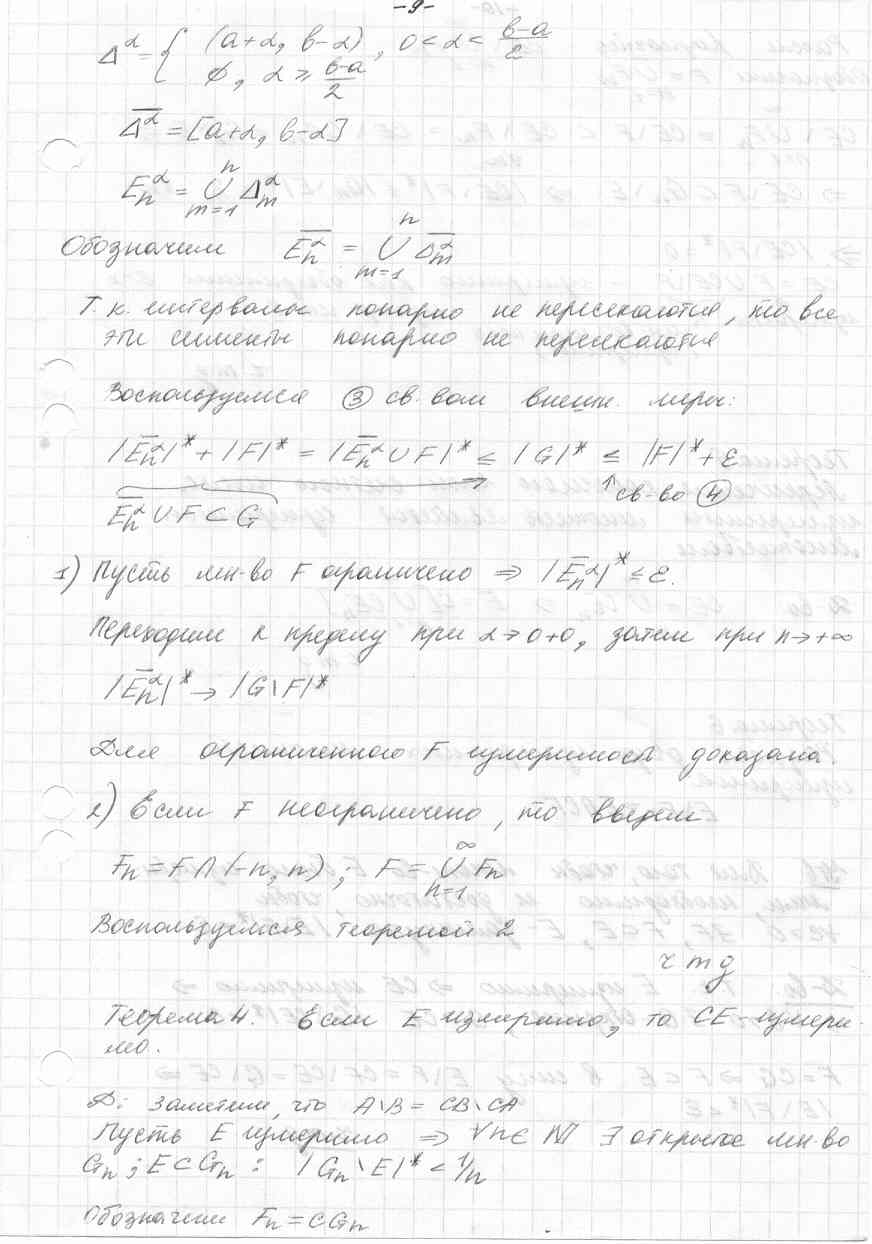 -9-
Δ^α = { (a+α, b-α), 0<α< (b-a)/2
∅, α ⩾ (b-a)/2
Δ̅^α̅ = [a+α, b-α]
E_n^α = ⋃_{m=1}^{n} Δ_m^α
Обозначим E̅_n^α = ⋃_{m=1}^{n} Δ̅_m^α
Т. к. интервалы попарно не пересекаются, то все
эти сегменты попарно не пересекаются
Воспользуемся ③ св-вом внешн. меры:
|E̅_n^α|* + |F|* = |E̅_n^α ∪ F|* ≤ |G|* ≤ |F|* + ε
E̅_n^α ∪ F ⊂ G ↑ св-во ④
1) Пусть мн-во F ограничено ⇒ |E̅_n^α|* ≤ ε.
Переходим к пределу при α→0+0, затем при n→+∞
|E̅_n^α|* → |G\F|*
Для ограниченного F измеримость доказана.
2) Если F неограничено, то введем
F_n = F ∩ (-n, n) ; F = ⋃_{n=1}^{∞} F_n
Воспользуемся теоремой 2
чтд
Теорема 4. Если E измеримо, то CE - измери-
мо.
Д: Заметим, что A\B = CB\CA
Пусть E измеримо ⇒ ∀n∈ℕ ∃ открытое мн-во
G_n ; E⊂G_n : |G_n\E|* < 1/n
Обозначим F_n = CG_n